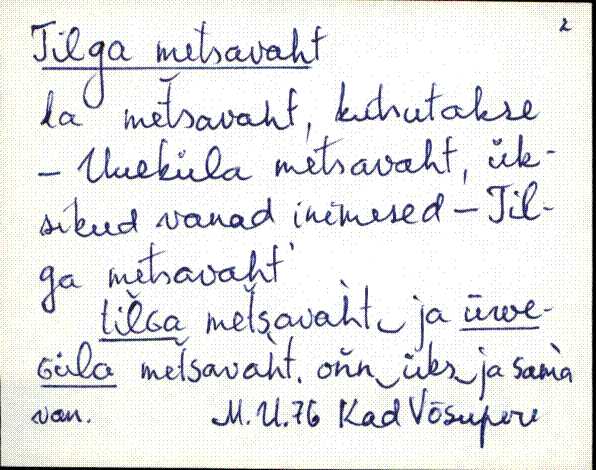 2
Tilga metsavaht
ka metsavaht, kutsutakse
– Uueküla metsavaht, ük-
sikud vanad inimesed – Til-
ga metsavaht
tilGa mefsavaht ja
Güla metsavaht. oǹn üks ja sama
van. M.U.76 Kad Võsupere